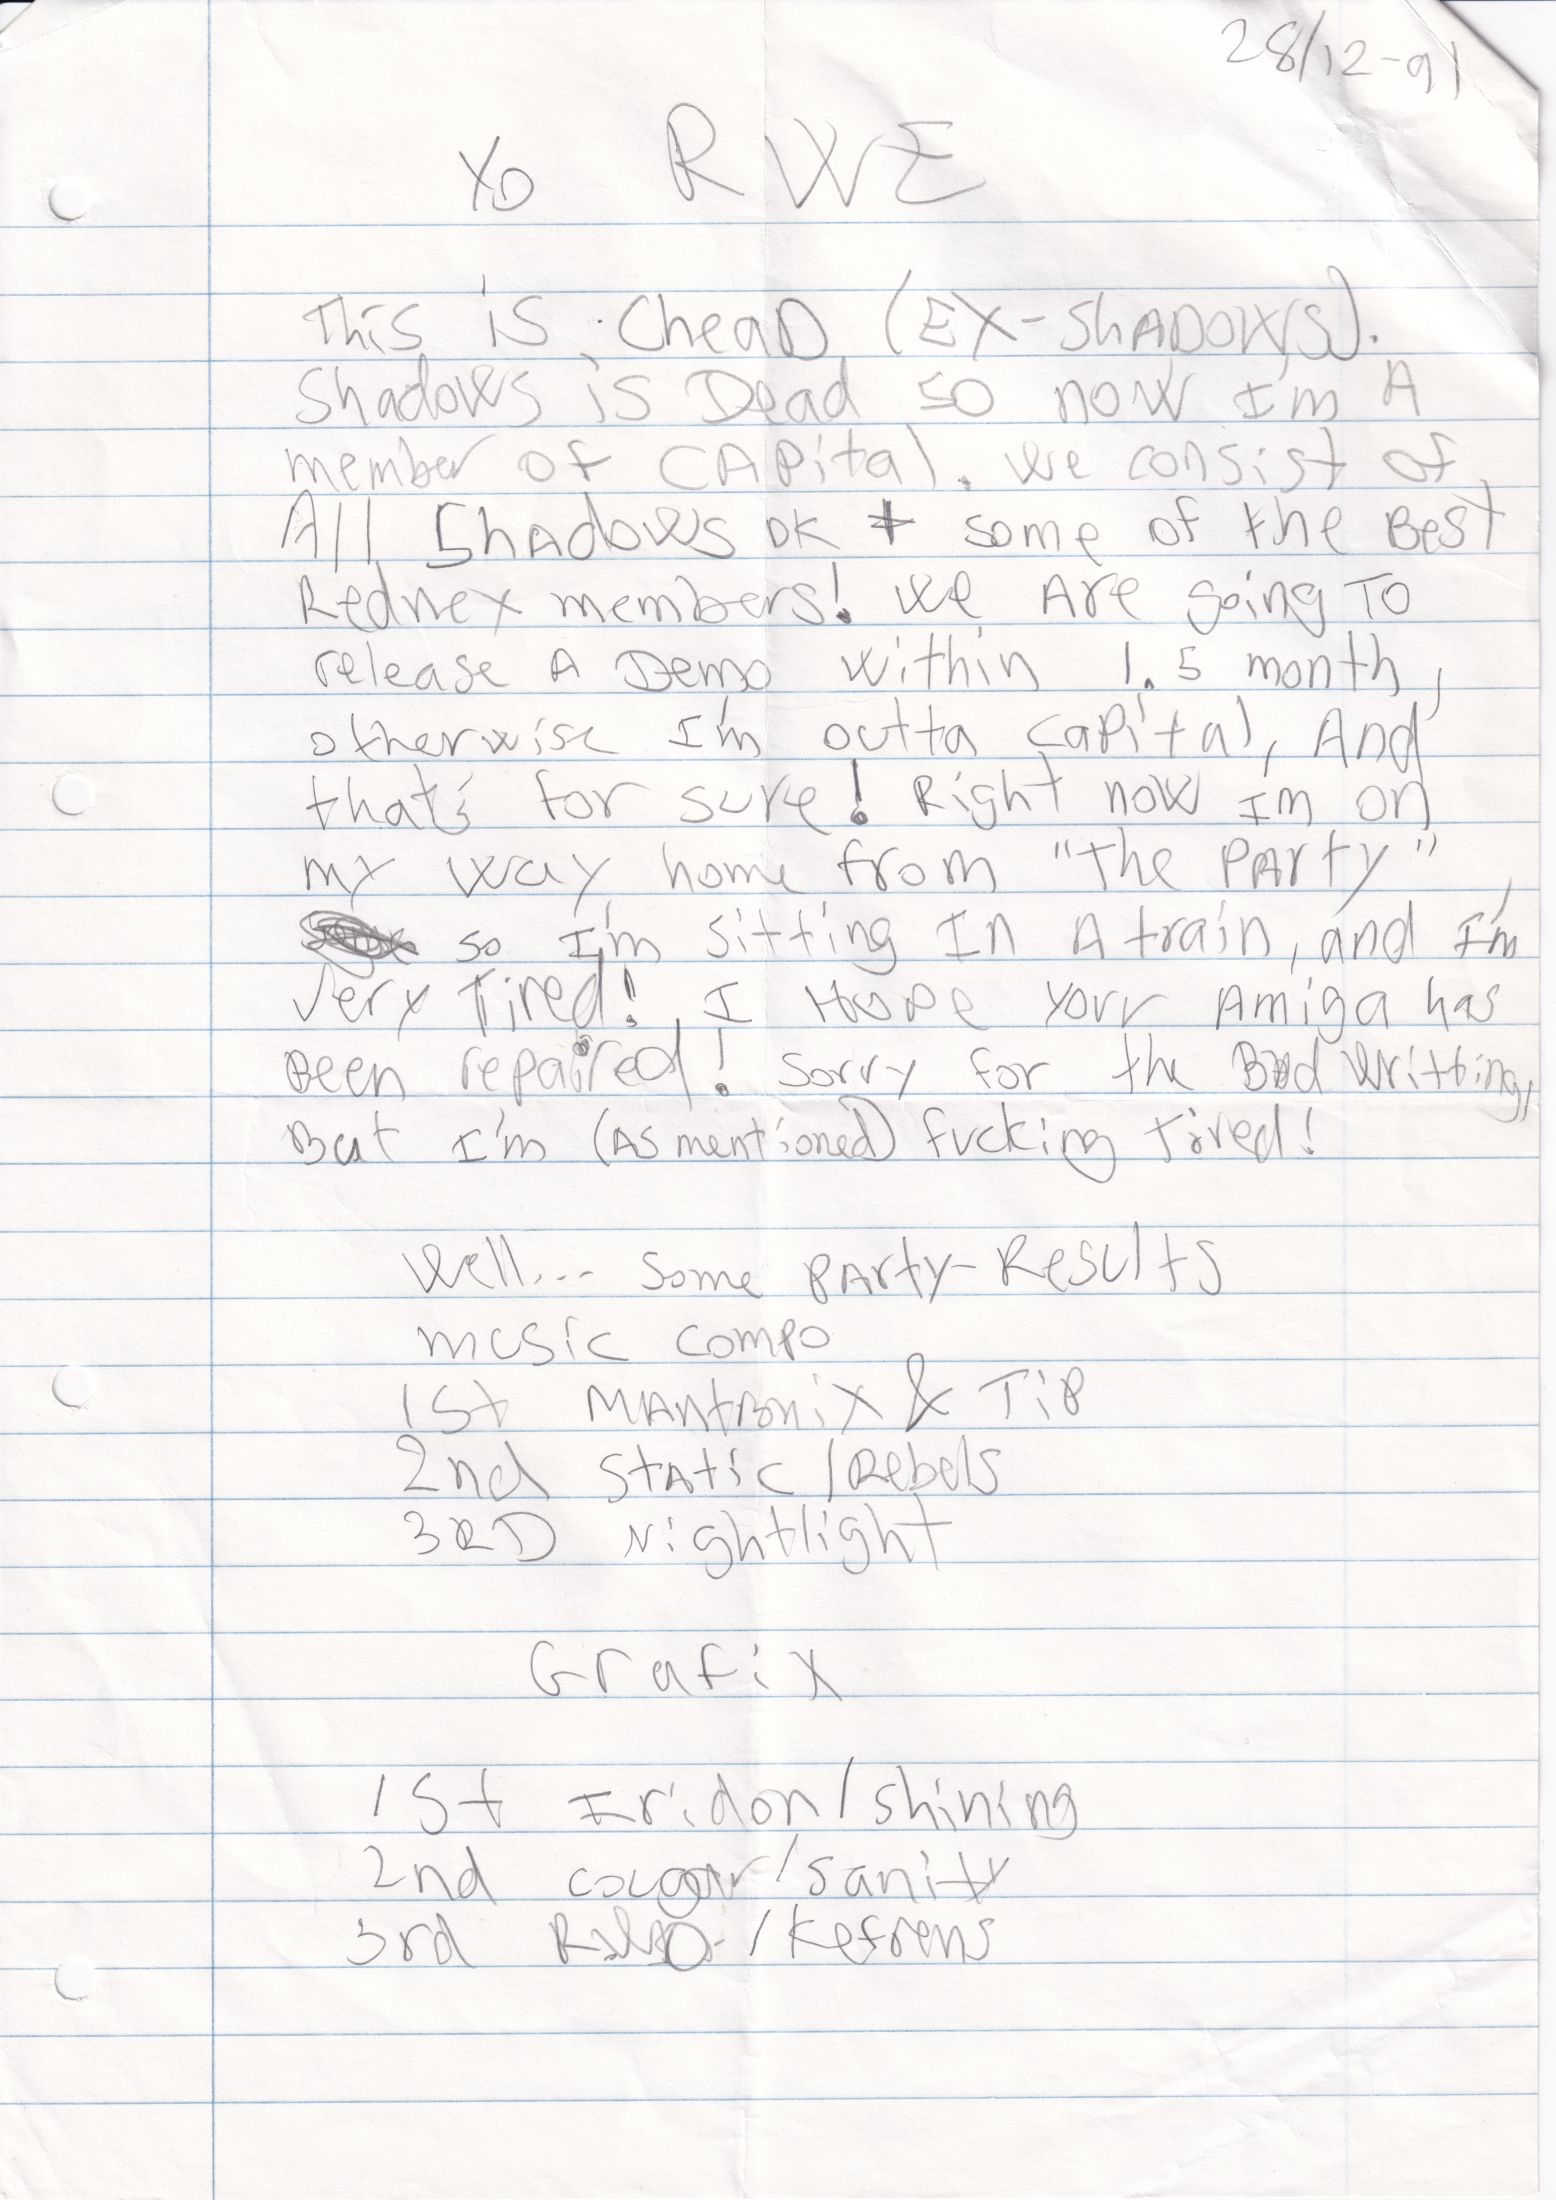 28/12-91
YO RWE
This is CheaD (EX-ShADOWS).
Shadows is Dead so now I'm A
member of CAPital. We consist of
All ShAdows DK + some of the Best
Rednex members! We Are going TO
release A Demo within 1.5 month,
otherwise I'm outta capital, And
that's for sure! Right now I'm on
my way home from "The PArty"
so I'm sitting In A train, and I'm
Very Tired! I Hope your Amiga has
Been repaired! Sorry for the Bad Writting,
But I'm (As mentioned) fucking Tired!
Well... Some PArty-Results
music compo
1st MAntronix & TiP
2nd StAtic/Rebels
3RD Nightlight
Grafix
1st Iridon/shining
2nd cougar/sanity
3rd /Kefrens